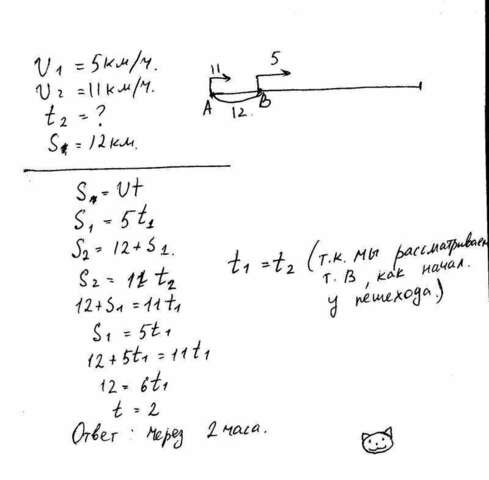 υ1 = 5 км/ч.
υ2 = 11 км/ч.
t2 = ?
S = 12 км.
11
5
A
B
12.
S = υt
S1 = 5t1
S2 = 12 + S1.
S2 = 11 t2
12 + S1 = 11t1
S1 = 5t1
12 + 5t1 = 11t1
12 = 6t1
t = 2
Ответ: через 2 часа.
t1 = t2 (т.к. мы рассматриваем
т. В, как начал.
у пешехода.)